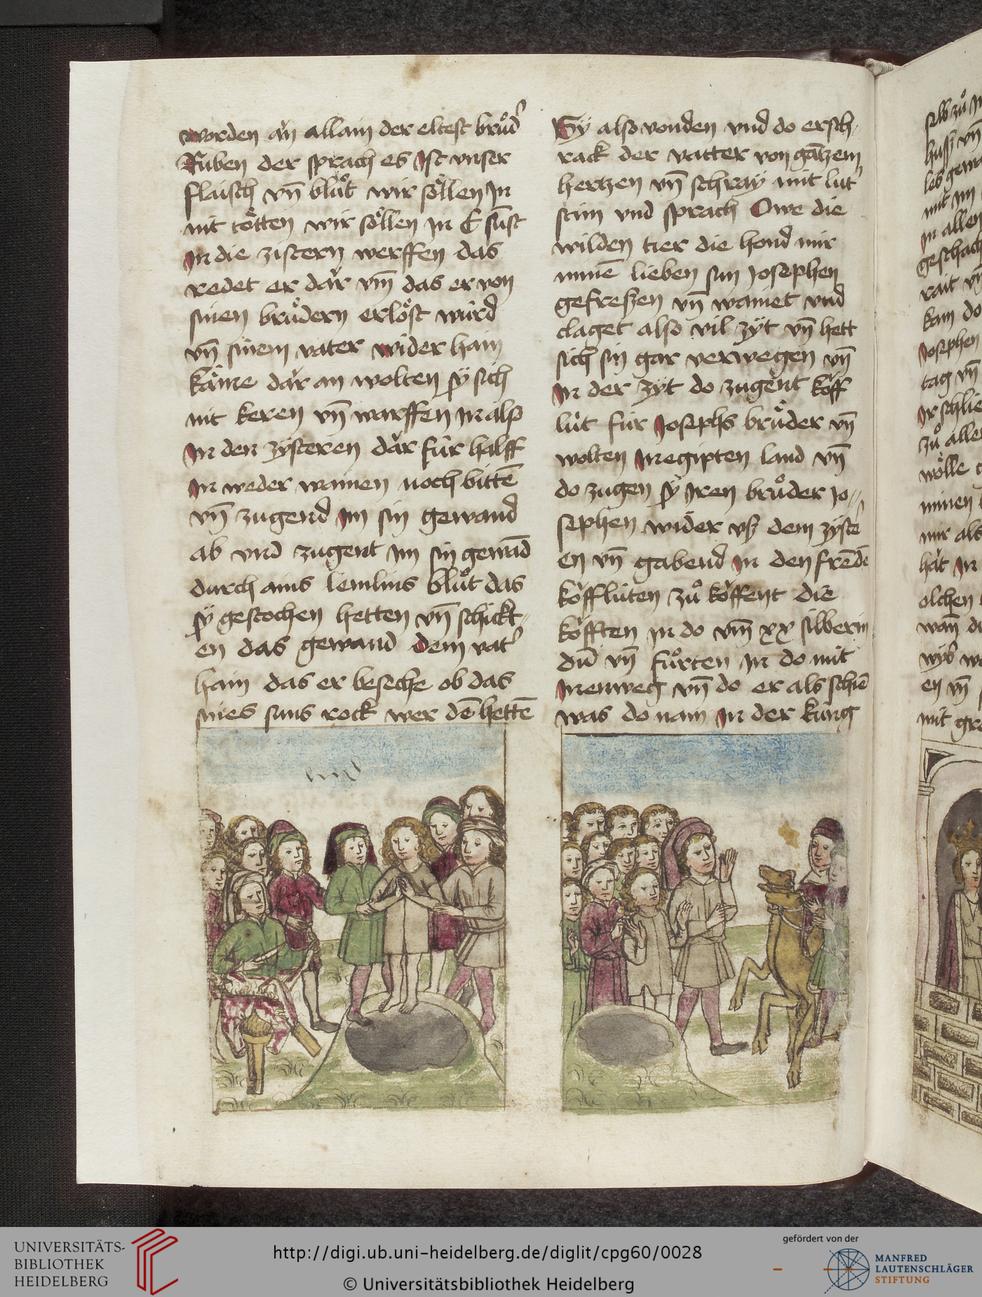 worden än allain der eltest brůd
Růben der sprach es Ist vnser
flaisch vn̄ blůt wir söllen In
nit tötten wir söllen In E sust
In die zistern werffen das
redet er där vm̄ das er von
sinen brůdern erlöst würd
vn̄ sinem vater wider ham
käme där an wolten sÿ sich
nit keren vn̄ warffen In also
In den zÿsteren där für halff
In weder wainen noch bitte͂
vn̄ zugend Im sin gewand
ab vnd zugent Im sin gewand
durch ains lemlins blůt das
sÿ gestochen hetten vn̄ schickt-
en das gewand dem vat
ham das er beseche ob das
sines suns rock wer de͂ hette͂
Sÿ also vonden vnd do ersch-
rack der vatter von gantzem
hertzen vn̄ schraÿ mit lut
stim vnd sprach Owe die
wilden tier die hond mir
minē lieben sun Josephen
gefressen vn̄ wainet vnd
claget also vil zÿt vn̄ hett
sich sin gar verwegen vn̄
In der zÿt do zugent köff
lüt für Josephs brůder vn̄
wolten In egipten land vn̄
do zugen sÿ Iren brůder Jo-
sephen wider vß dem zÿste
en vn̄ gabend In den fremde͂
köfflüten zů köffent die
köfften In do vm̄ xx silberin
vn̄ fůrten In do mit
Inen weg vn̄ do er als schie͂
was do nam In der küng
UNIVERSITÄTS-
BIBLIOTHEK
HEIDELBERG
http://digi.ub.uni-heidelberg.de/diglit/cpg60/0028
© Universitätsbibliothek Heidelberg
gefördert von der
MANFRED
LAUTENSCHLÄGER
STIFTUNG